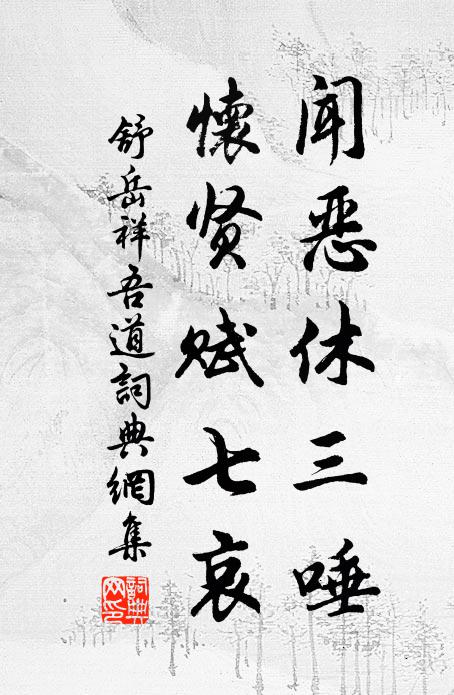 闻恶休三唾
懷贤赋七哀
舒岳祥吾道詞典網集
詞典网印